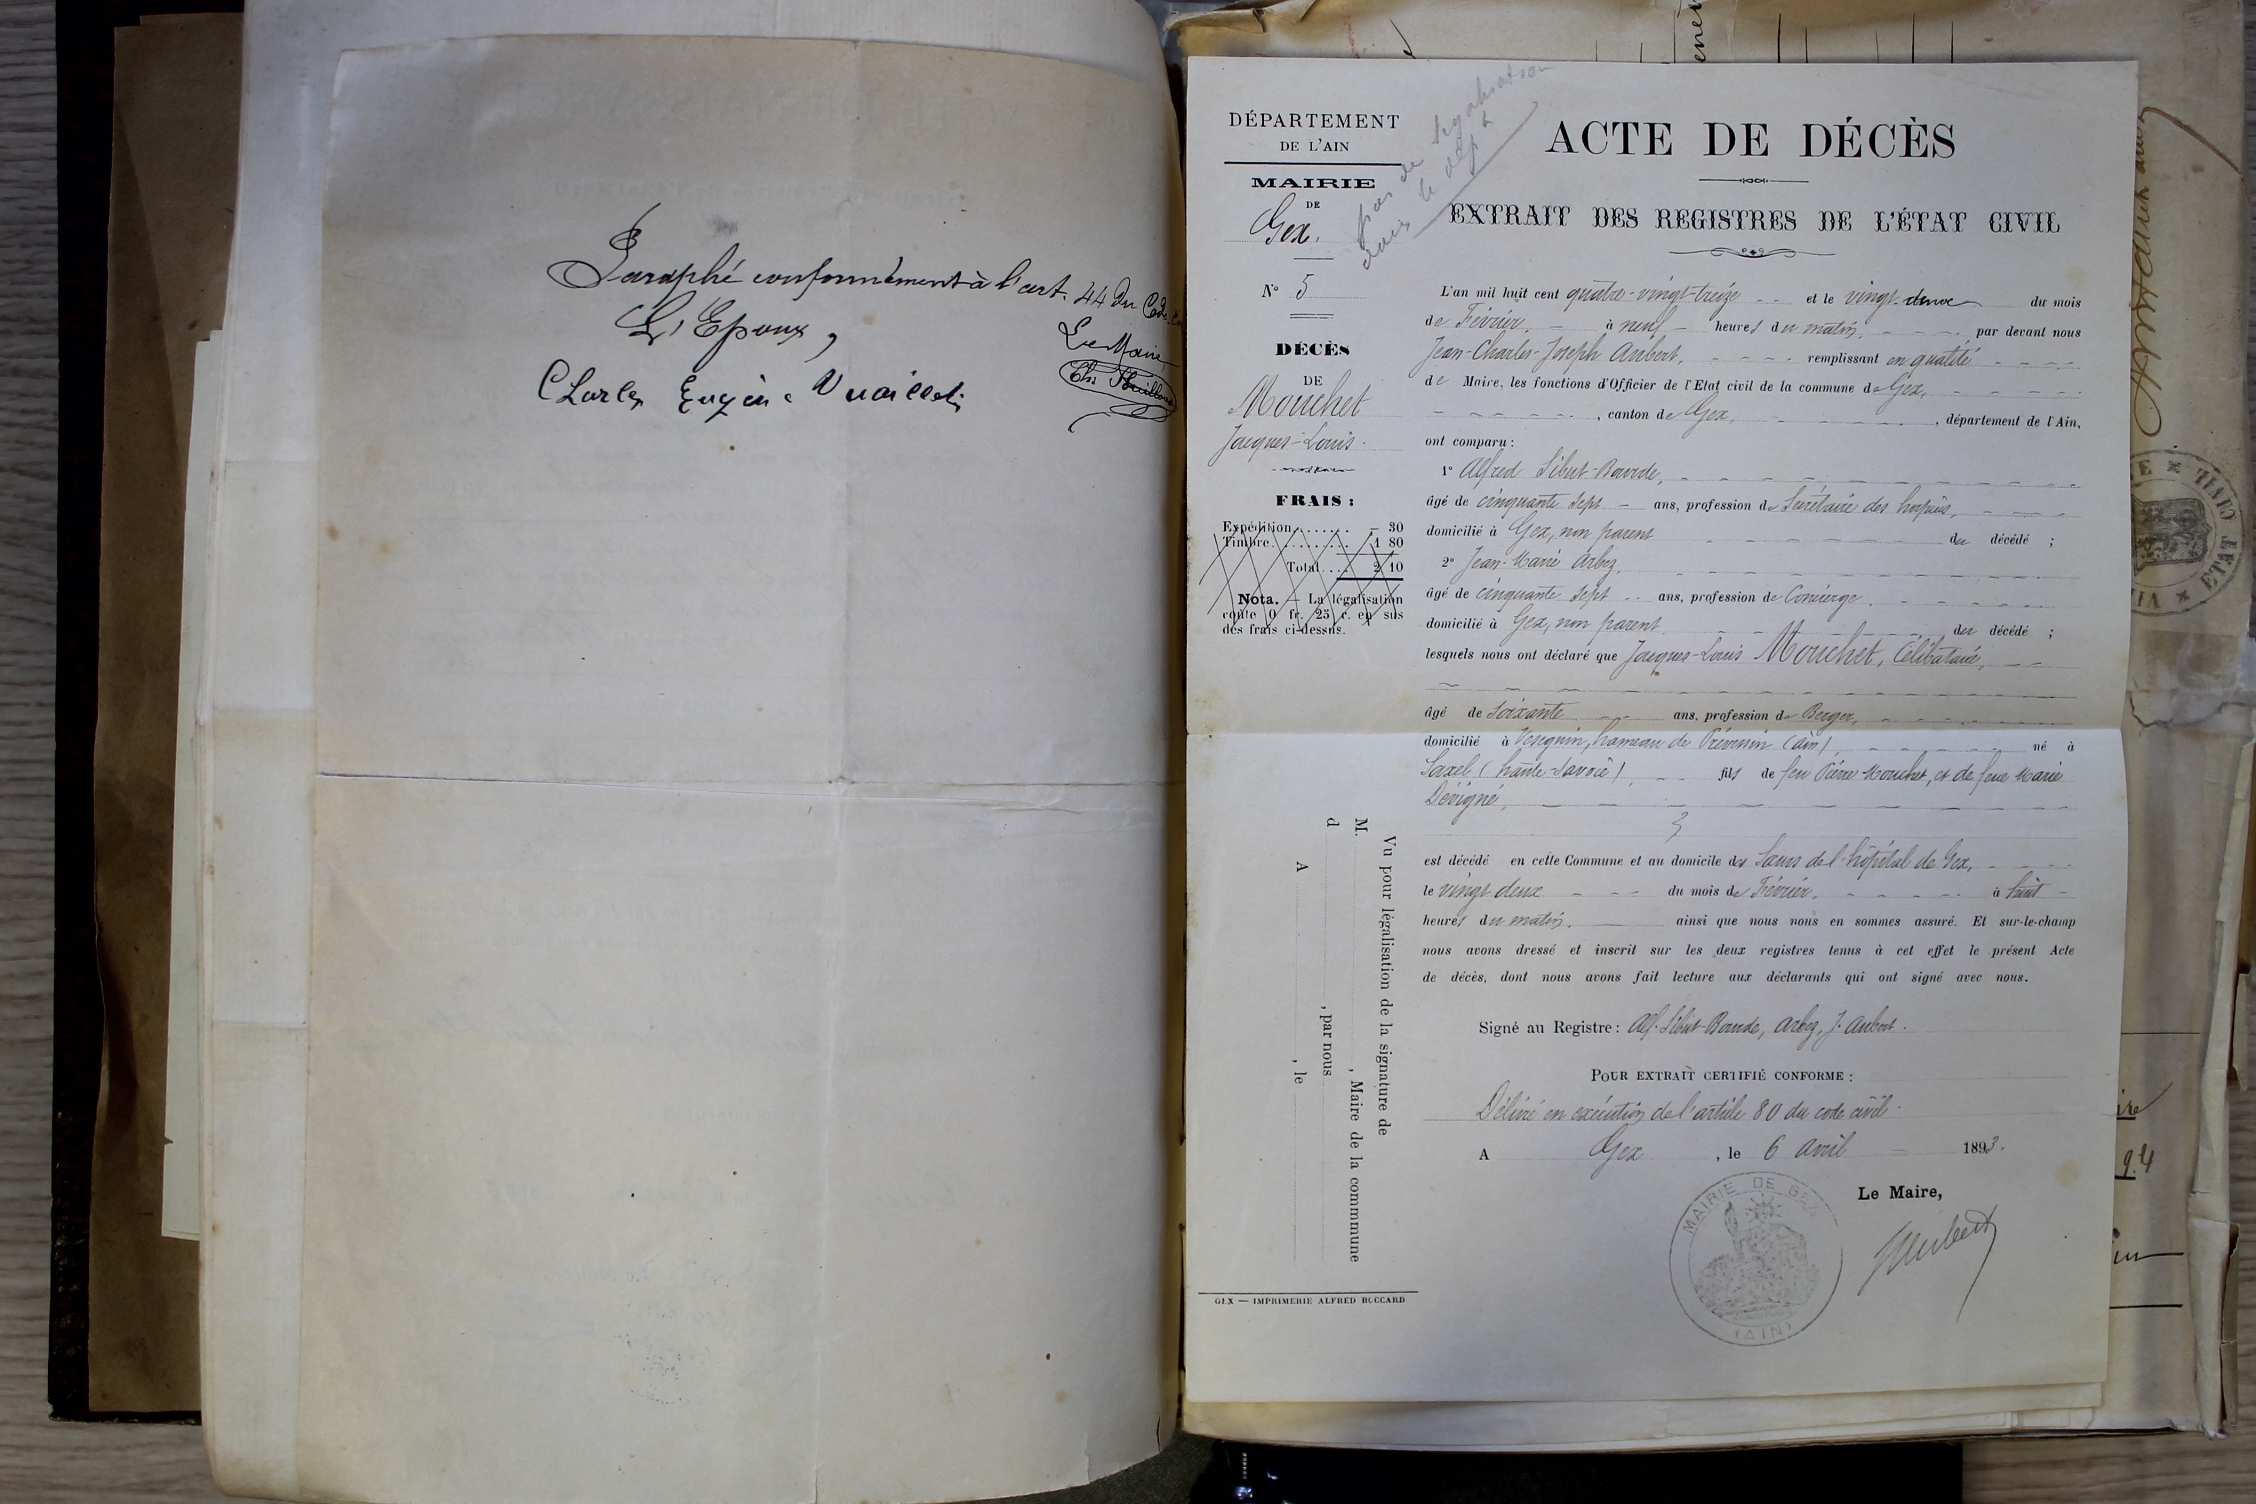 Paraphé conformément à l'art. 44 du Code
L'Epoux,
Le Maire
Charles Eugène Vuaillet
DÉPARTEMENT
DE L'AIN
MAIRIE
DE
Gex.
N° 5
DÉCÈS
DE
Mouchet
Jacques-Louis.
FRAIS :
Expédition........ — 30
Timbre.......... 1 80
Total.... 2 10
Nota. — La légalisation
coûte 0 fr. 25 c. en sus
des frais ci-dessus.
Vu pour légalisation de la signature de
M. , Maire de la commmune
d , par nous
A , le
GEX — IMPRIMERIE ALFRED BOCCARD
pas de légalisation
dans le dépt
ACTE DE DÉCÈS
EXTRAIT DES REGISTRES DE L'ÉTAT CIVIL
L'an mil huit cent quatre-vingt-treize et le vingt-deux du mois
de Février, à neuf heures du matin, par devant nous
Jean-Charles-Joseph Aubert, remplissant en qualité
de Maire, les fonctions d'Officier de l'Etat civil de la commune de Gex,
, canton de Gex, , département de l'Ain,
ont comparu :
1° Alfred Sibut-Bourde,
âgé de cinquante sept ans, profession de Secrétaire des hospices,
domicilié à Gex, non parent du décédé ;
2° Jean-Marie Arbez,
âgé de cinquante sept ans, profession de Concierge.
domicilié à Gex, non parent du décédé ;
lesquels nous ont déclaré que Jacques-Louis Mouchet, Célibataire,
âgé de soixante ans, profession de Berger,
domicilié à Vesegnin, hameau de Prévessin (Ain), né à
Saxel (haute-Savoie), fils de feu Pierre Mouchet, et de feue Marie
Dévigné,
est décédé en cette Commune et au domicile des Sœurs de l'hôpital de Gex,
le vingt deux du mois de Février, à huit
heures du matin. ainsi que nous nous en sommes assuré. Et sur-le-champ
nous avons dressé et inscrit sur les deux registres tenus à cet effet le présent Acte
de décès, dont nous avons fait lecture aux déclarants qui ont signé avec nous.
Signé au Registre : Alf. Sibut-Bourde, Arbez, J. Aubert.
POUR EXTRAIT CERTIFIÉ CONFORME :
Délivré en exécution de l'article 80 du code civil.
A Gex , le 6 avril 1893.
Le Maire,
JAubert
MAIRIE DE GEX
(AIN)
ETAT CIVIL